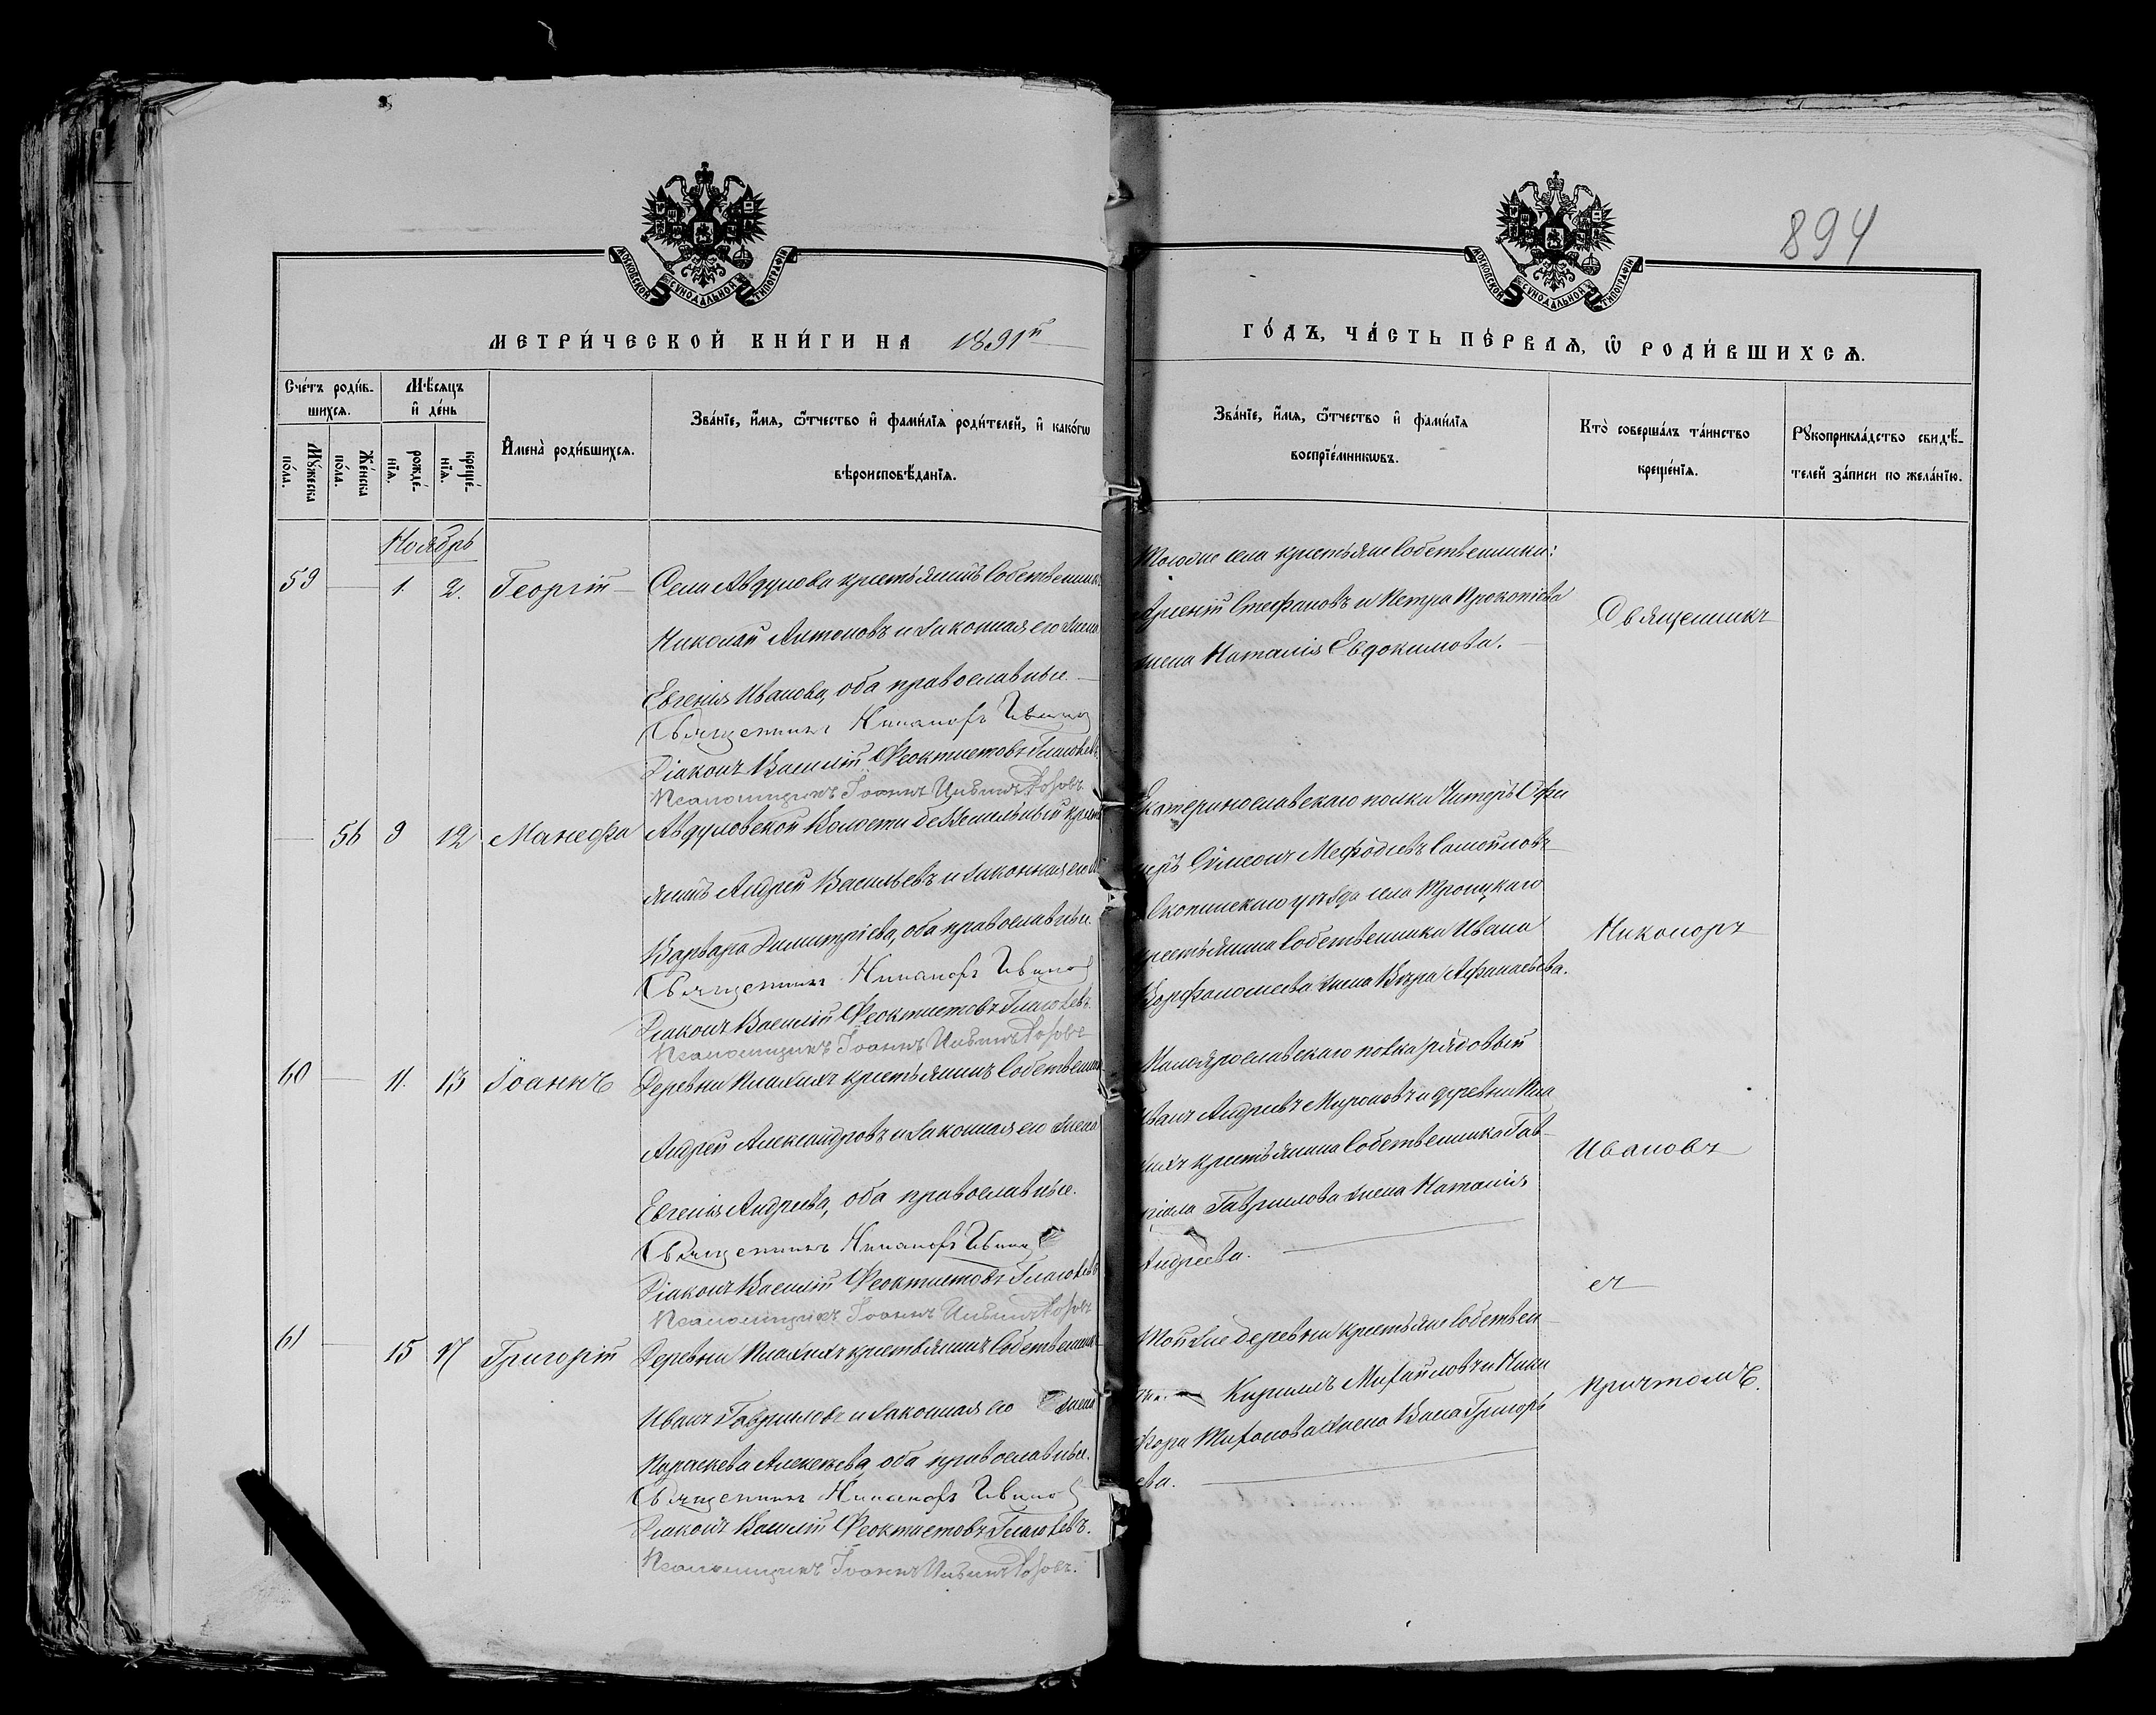 894
МОСКОВСКОЙ СѴНОДАЛЬНОЙ ТИПОГРАФІИ
МОСКОВСКОЙ СѴНОДАЛЬНОЙ ТИПОГРАФІИ
МЕТРИ́ЧЕСКОЙ КНИ́ГИ НА 1891й
ГО́ДЪ, ЧА́СТЬ ПЕ́РВАѦ, Ѿ РОДИ́ВШИХСѦ.
Сче́тъ роди́в-
шихся.
Мѣ́сяцъ
и де́нь
Мꙋ́жеска
по́ла.
Же́нска
по́ла.
рожде́-
нїя.
креще́-
нїя.
Имена̀ роди́вшихся.
Зва́нїе, и́мя, ѻ́тчество и фами́лїя роди́телей, и како́гѡ
вѣроисповѣ́данїя.
Зва́нїе, и́мя, ѻ́тчество и фами́лїя
воспрїе́мникѡвъ.
Кто̀ соверша́лъ та́инство
креще́нїя.
Рꙋкоприкла́дство свидѣ́-
телей за́писи по жела́нїю.
Ноябрь
59 — 1. 2. Георгій — Села Авдулова крестьянинъ собственникъ
Николай Антоновъ и законная его жена
Евгенія Иванова, оба православные.
Священникъ Никаноръ Ивановъ
Діаконъ Василій Феоктистовъ Глаголевъ
Псаломщикъ Іоаннъ Ильинъ Розовъ
Тогоже села крестьяне собственники:
Стефановъ и Петра Прокопіева
жена Наталія Евдокимова.
— 56 9 12 Манефа Авдуловской Волости безземельный крестья
янинъ Андрей Васильевъ и законная его
Варвара Димитріева, оба православные.
Священникъ Никаноръ Ивановъ
Діаконъ Василій Феоктистовъ Глаголевъ
Псаломщикъ Іоаннъ Ильинъ Розовъ
Екатеринославскаго полка Унтеръ Офи
церъ Сѵмеонъ Мефодіевъ Самойловъ
Скопинскаго уѣзда села Троицкаго
крестьянина собственника Ивана
Варфоломеева жена Вѣра Афанасьева.
60 — 11. 13 Іоаннъ Деревни крестьянинъ собственникъ
Андрей Александровъ и законная его жена
Евгенія Андреева, оба православные.
Священникъ Никаноръ Ивановъ
Діаконъ Василій Феоктистовъ Глаголевъ
Псаломщикъ Іоаннъ Ильинъ Розовъ
Малоярославскаго полка рядовый
Иванъ Андреевъ Мироновъ и деревни
крестьянина собственника Гав-
ріила Гаврилова жена Наталія
Андреева.
61 — 15 17 Григорій Деревни крестьянинъ собственникъ
Иванъ Гавриловъ и законная его жена
Параскева Алексеева, оба православные.
Священникъ Никаноръ Ивановъ
Діаконъ Василій Феоктистовъ Глаголевъ.
Псаломщикъ Іоаннъ Ильинъ Розовъ.
Той же деревни крестьяне собствен
Кириллъ Михайловъ и Ники
фора Тихонова жена Васса Григорь
ева.
Священникъ
Никаноръ
Ивановъ
съ
причтомъ.